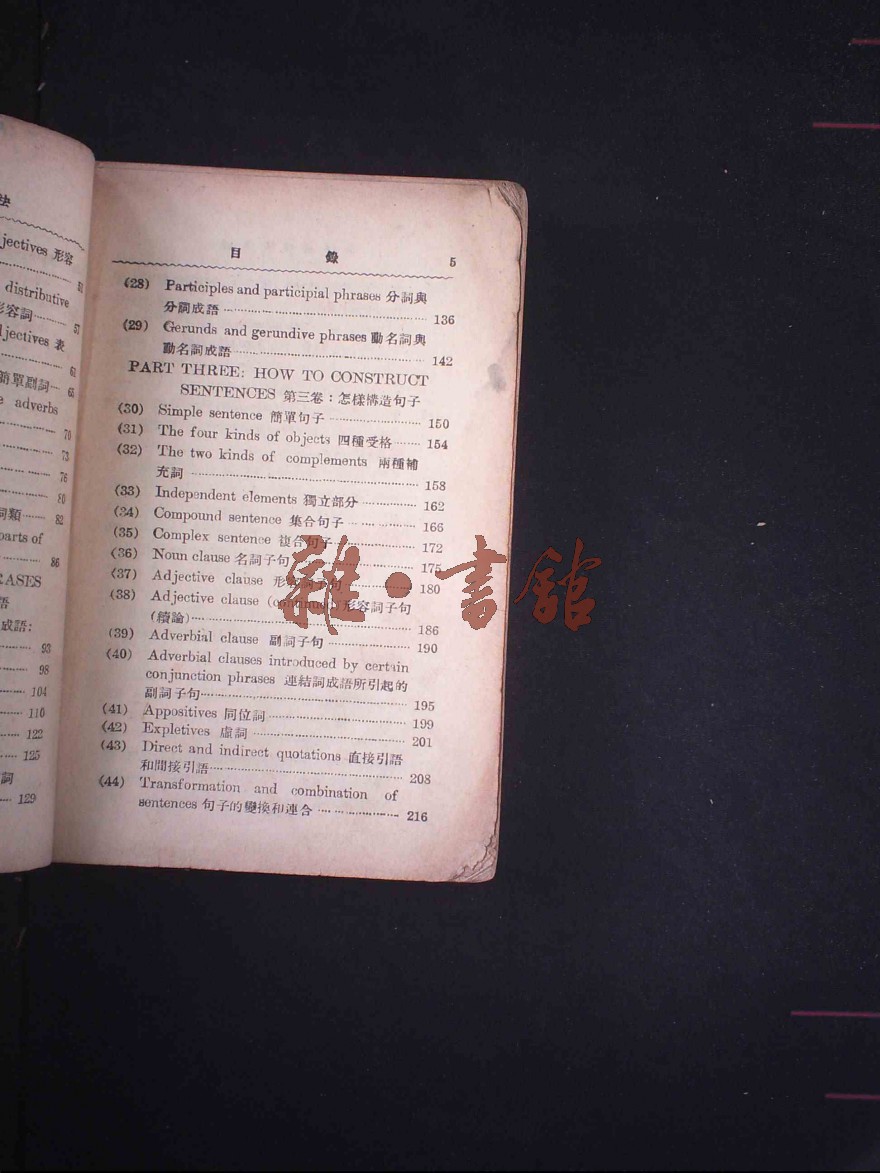 法
jectives 形容
51
distributive
形容詞 57
ljectives 表
61
簡單副詞 65
e adverbs
70
73
76
80
詞類 82
parts of
86
RASES
語
成語:
93
98
104
110
122
125
詞
129
目 錄 5
(28) Participles and participial phrases 分詞與
分詞成語 136
(29) Gerunds and gerundive phrases 動名詞與
動名詞成語 142
PART THREE: HOW TO CONSTRUCT
SENTENCES 第三卷：怎樣構造句子
(30) Simple sentence 簡單句子 150
(31) The four kinds of objects 四種受格 154
(32) The two kinds of complements 兩種補
充詞 158
(33) Independent elements 獨立部分 162
(34) Compound sentence 集合句子 166
(35) Complex sentence 複合句子 172
(36) Noun clause 名詞子句 175
(37) Adjective clause 形容詞子句 180
(38) Adjective clause (continued) 形容詞子句
(續論) 186
(39) Adverbial clause 副詞子句 190
(40) Adverbial clauses introduced by certain
conjunction phrases 連結詞成語所引起的
副詞子句 195
(41) Appositives 同位詞 199
(42) Expletives 虛詞 201
(43) Direct and indirect quotations 直接引語
和間接引語 208
(44) Transformation and combination of
sentences 句子的變換和連合 216
雜·書館